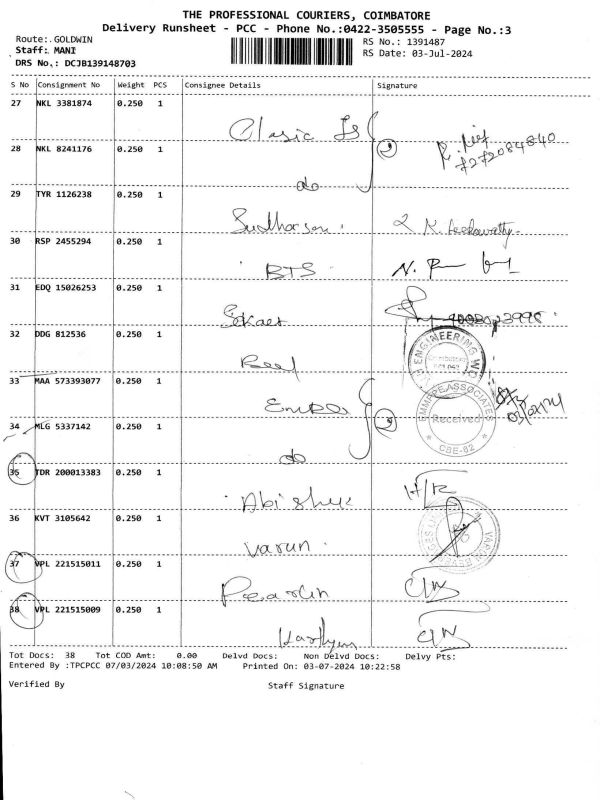 THE PROFESSIONAL COURIERS, COIMBATORE
Delivery Runsheet - PCC - Phone No.:0422-3505555 - Page No.:3
Route: GOLDWIN
RS No.: 1391487
Staff: MANI
RS Date: 03-Jul-2024
DRS No.: DCJB139148703
S No Consignment No Weight PCS Consignee Details Signature
27 NKL 3381874 0.250 1
Clasic
28 NKL 8241176 0.250 1
7272084840
do
29 TYR 1126238 0.250 1
Sudharson
30 RSP 2455294 0.250 1
BTS N.
31 EDQ 15026253 0.250 1
Sekaer
32 DDG 812536 0.250 1
ENGINEERING
Reef
33 MAA 573393077 0.250 1
ASSOCIATES
Received
34 MLG 5337142 0.250 1
CBE-62
do
35 TDR 200013383 0.250 1
Abishek H/R
36 KVT 3105642 0.250 1
Varun
37 VPL 221515011 0.250 1
Pearlin
38 VPL 221515009 0.250 1
Tot Docs: 38 Tot COD Amt: 0.00 Delvd Docs: Non Delvd Docs: Delvy Pts:
Entered By :TPCPCC 07/03/2024 10:08:50 AM Printed On: 03-07-2024 10:22:58
Verified By Staff Signature